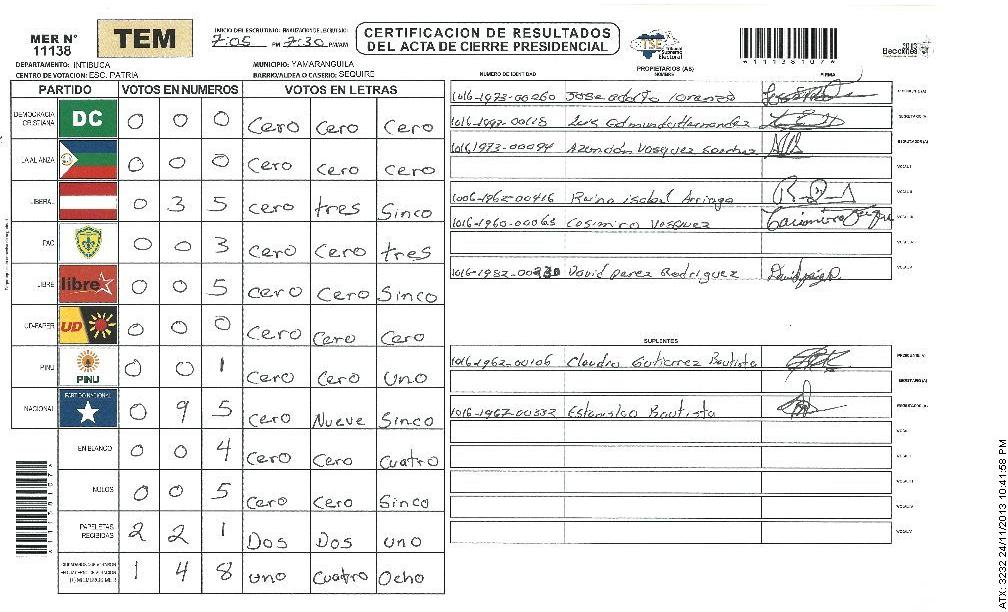 MER N° 11138
TEM
INICIO DEL ESCRUTINIO: FINALIZACION DEL ESCRUTINIO:
7:05 PM 7:30 PM/AM
CERTIFICACION DE RESULTADOS
DEL ACTA DE CIERRE PRESIDENCIAL
TSE Tribunal Supremo Electoral
*11138107*
DEPARTAMENTO: INTIBUCA
MUNICIPIO: YAMARANGUILA
CENTRO DE VOTACION: ESC. PATRIA
BARRIO/ALDEA O CASERIO: SEQUIRE
PROPIETARIOS (AS)
NUMERO DE IDENTIDAD NOMBRE FIRMA
PARTIDO VOTOS EN NUMEROS VOTOS EN LETRAS
DEMOCRACIA CRISTIANA DC 0 0 0 Cero Cero Cero
LA ALIANZA 0 0 0 Cero Cero Cero
LIBERAL 0 3 5 Cero tres Sinco
PAC 0 0 3 Cero Cero tres
LIBRE libre 0 0 5 Cero Cero Sinco
UD-FAPER UD 0 0 0 Cero Cero Cero
PINU PINU 0 0 1 Cero Cero uno
NACIONAL PARTIDO NACIONAL 0 9 5 Cero Nueve Sinco
EN BLANCO 0 0 4 Cero Cero Cuatro
NULOS 0 0 5 Cero Cero Sinco
PAPELETAS RECIBIDAS 2 2 1 Dos Dos uno
1 4 8 uno Cuatro Ocho
1016-1973-00260 Jose adolfo lorenzo
1016-1992-00118 Luis Edmundo Hernandez SECRETARIO(A)
1016-1973-00094 Azunción Vasquez Sanchez ESCRUTADOR(A)
VOCAL I
1006-1962-00416 Rufina isabel Arriaga VOCAL II
1016-1960-00065 Casimiro Vasquez VOCAL III
VOCAL IV
1016-1982-00230 David perez Rodriguez David perez R VOCAL V
SUPLENTES
1016-1962-00106 Claudio Gutierrez Bautista PRESIDENTE(A)
SECRETARIO(A)
1016-1967-00332 Estanislao Bautista ESCRUTADOR(A)
VOCAL I
VOCAL II
VOCAL III
VOCAL IV
VOCAL V
*11138107*
ATX: 3232 24/11/2013 10:41:58 PM